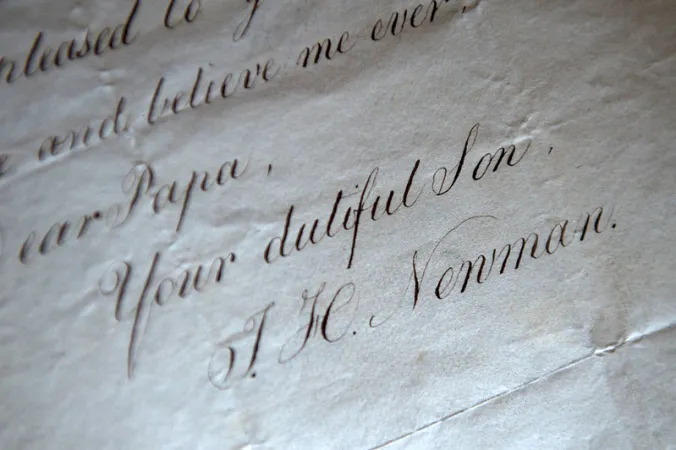 pleased to
and believe me ever,
Dear Papa,
Your dutiful Son,
J. H. Newman.